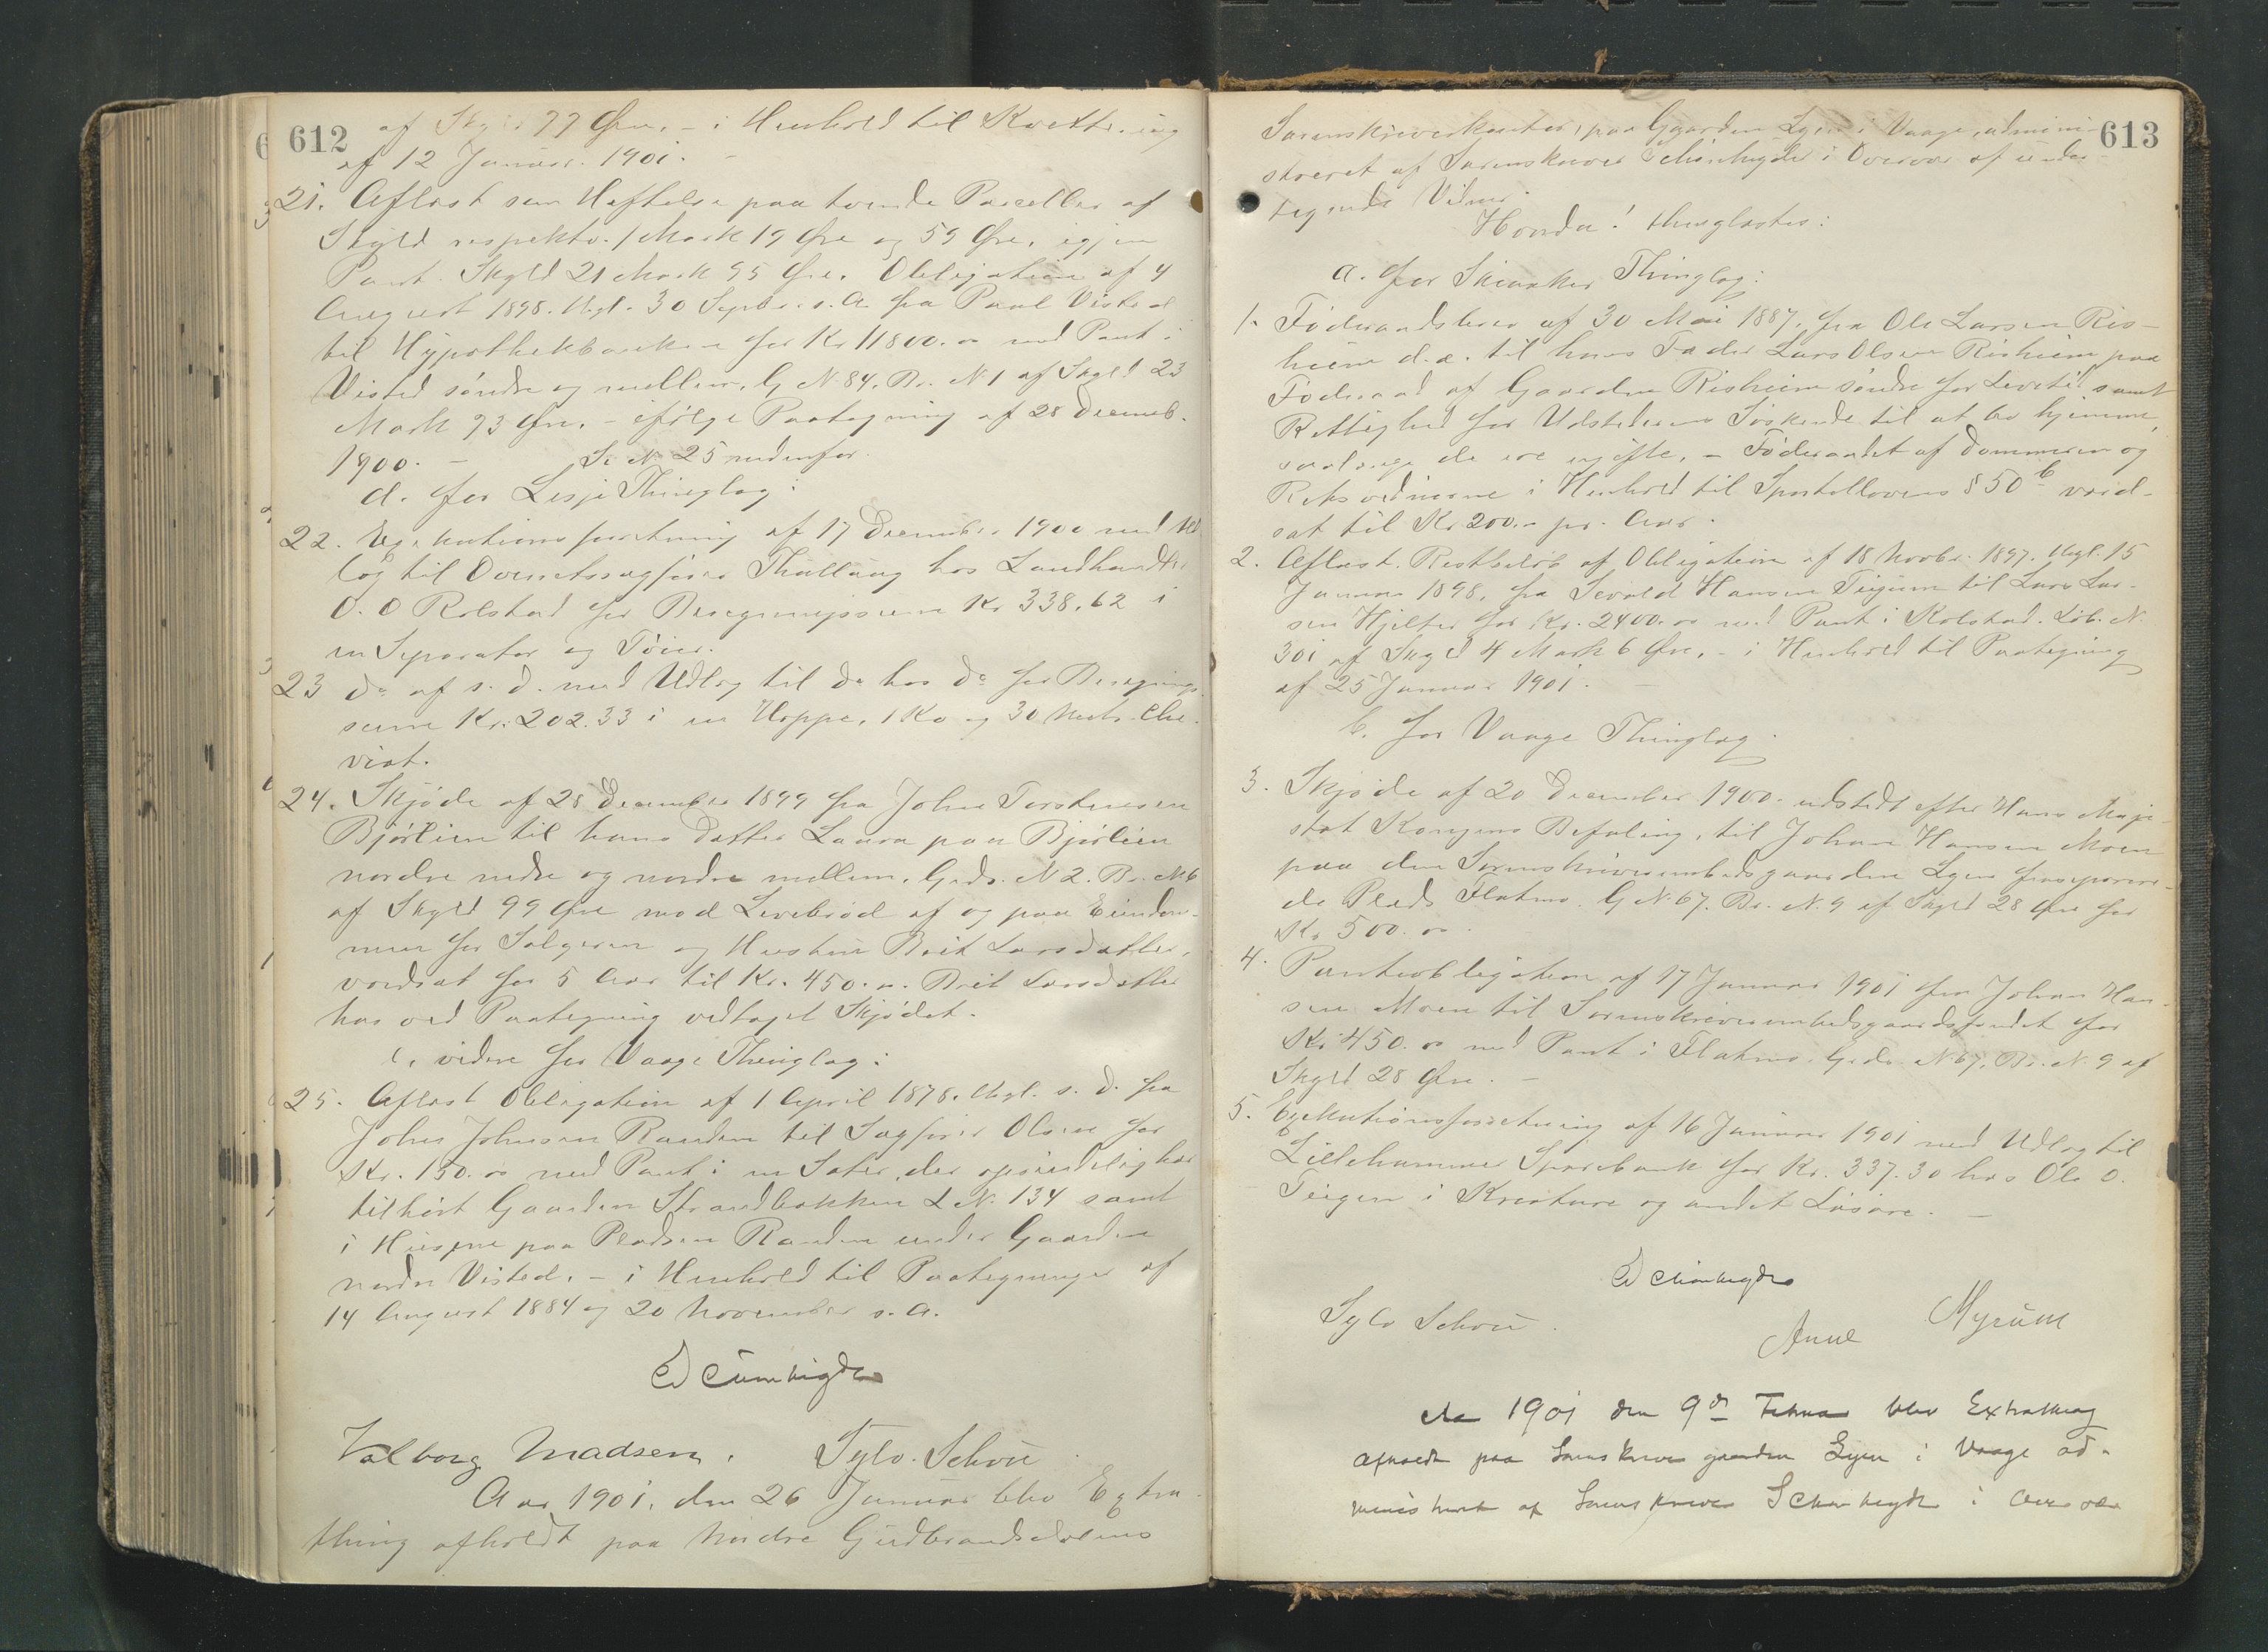 612
af Skyld 99 Øre. - i Henhold til Kvittering
af 12 Januar. 1901. -
21. Aflæst som Heftelse paa tvende Parceller af
Skyld respektv. 1 Mark 19 Øre og 59 Øre, igjen
Pant. Skyld 21 Mark 95 Øre. Obligation af 4
August 1898. thgl. 30 Septbr. s. A. fra Paul Visted
til Hypothekbanken for Kr 11800.00 med Pant i
Visted søndre og mellem, G. N. 84. Br. N 1 af Skyld 23
Mark 93 Øre. - ifølge Paategning af 28 Decemb.
1900. - Se No 25 nedenfor.
d. for Lesje Thinglag:
22. Exekutionsforretning af 17 December 1900 med Ud
læg til Overretssagfører Thallaug hos Landhandler
O. O Rolstad for Beregningssum Kr. 338.62 i
en Separator og Tøier.
23 do af s. d. med Udlæg til do hos do for Beregnings
sum Kr. 202.33 i en Hoppe, 1 Ko og 30 Metr. Che-
viot.
24. Skjøde af 28 December 1899 fra John Torstensen
Bjørlien til hans Datter Laura paa Bjørlien
nordre nedre og nordre mellem. Grds. N 2. Br. N 6
af Skyld 99 Øre mod Levebrød af og paa Eiendom-
men for Sælgeren og Hustru Brit Larsdatter,
værdsat for 5 Aar til Kr. 450.00. Brit Larsdatter
har ved Paategning vedtaget Skjødet.
e. videre for Vaage Thinglag:
25. Aflæst Obligation af 1 April 1878. thgl. s. D. fra
John Johnsen Randen til Sagfører Olsen for
Kr. 150.00 med Pant i en Sæter, der oprindelig har
tilhørt Gaarden Strandbakken L N. 134 samt
i Husene paa Pladsen Randen under Gaarden
nordre Visted. - i Henhold til Paategninger af
14 August 1884 og 20 November s. A.
Schønheyder
Valborg Madsen. Sylv. Schou
Aar 1901. den 26 Januar blev Extra-
thing afholdt paa Nordre Gudbrandsdalens
613
Sorenskriverkontor, paa Gaarden Sygn i Vaage, admini-
streret af Sorenskriver Schønheyder i Overvær af under-
tegnede Vidner.
Hvorda! thinglæstes:
a. for Skiaaker Thinglag:
1. Føderaadsbrev af 30 Mai 1887. fra Ole Larsen Ris-
heim d. æ. til hans Fader Lars Olsen Risheim paa
Føderaad af Gaarden Risheim søndre for Levetid samt
Rettighed for Udstederens Søskende til at bo hjemme,
saalænge de ere ugifte. - Føderaadet af Dommeren og
Retsvidnerne i Henhold til Sportellovens § 50 b værd-
sat til Kr 200.- pr. Aar.
2. Aflæst. Restbeløb af Obligation af 18 Novbr. 1897. thgl. 15
Januar 1898. fra Sevald Hansen Teigum til Lars Lar-
sen Hjelter for Kr. 2400.00 med Pant i Kolstad. Løb. N.
301 af Skyld 4 Mark 6 Øre. - i Henhold til Paategning
af 25 Januar 1901. -
b. for Vaage Thinglag.
3. Skjøde af 20 December 1900. udstedt efter Hans Maje-
stæt Kongens Befaling, til Johan Hansen Moen
paa den Sorenskriverembedsgaarden Sygn frasepare-
de Plads Flatmo. G N. 67. Br. N. 9 af Skyld 28 Øre for
Kr 500.00.
4. Panteobligation af 17 Januar 1901 fra Johan Han-
sen Moen til Sorenskriverembedsgaardsfondet for
Kr. 450.00 med Pant i Flatmo. Grds. N. 67. Br. N. 9 af
Skyld 28 Øre. -
5. Exekutionsforretning af 16 Januar 1901 med Udlæg til
Lillehammer Sparebank for Kr. 337.30 hos Ole O.
Teigen i Kreature og andet Løsøre. -
Schønheyder
Sylv Schou. Anne Myrum
Aar 1901 den 9de Februar blev Extrathing
afholdt paa Sorenskrivergaarden Sygn i Vaage ad-
ministreret af Sorenskriver Schønheyder i Overvær